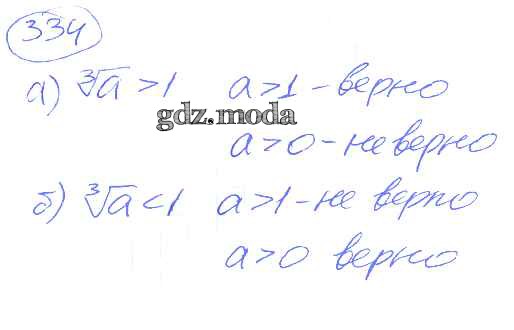 334
а) ∛a > 1 a > 1 - верно
gdz.moda
a > 0 - не верно
б) ∛a < 1 a > 1 - не верно
a > 0 верно